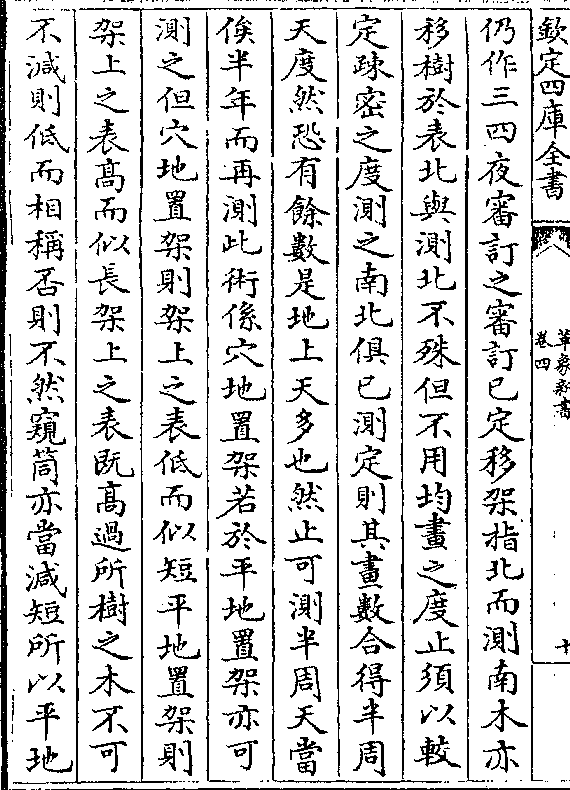 欽定四庫全書
革象新書
卷四
十
仍作三四夜審訂之審訂已定移架指北而測南木亦
移樹於表北與測北不殊但不用均畫之度止須以較
定疎密之度測之南北俱已測定則其畫數合得半周
天度然恐有餘數是地上天多也然止可測半周天當
俟半年而再測此術係穴地置架若於平地置架亦可
測之但穴地置架則架上之表低而似短平地置架則
架上之表髙而似長架上之表既髙過所樹之木不可
不減則低而相稱否則不然窺筒亦當減短所以平地